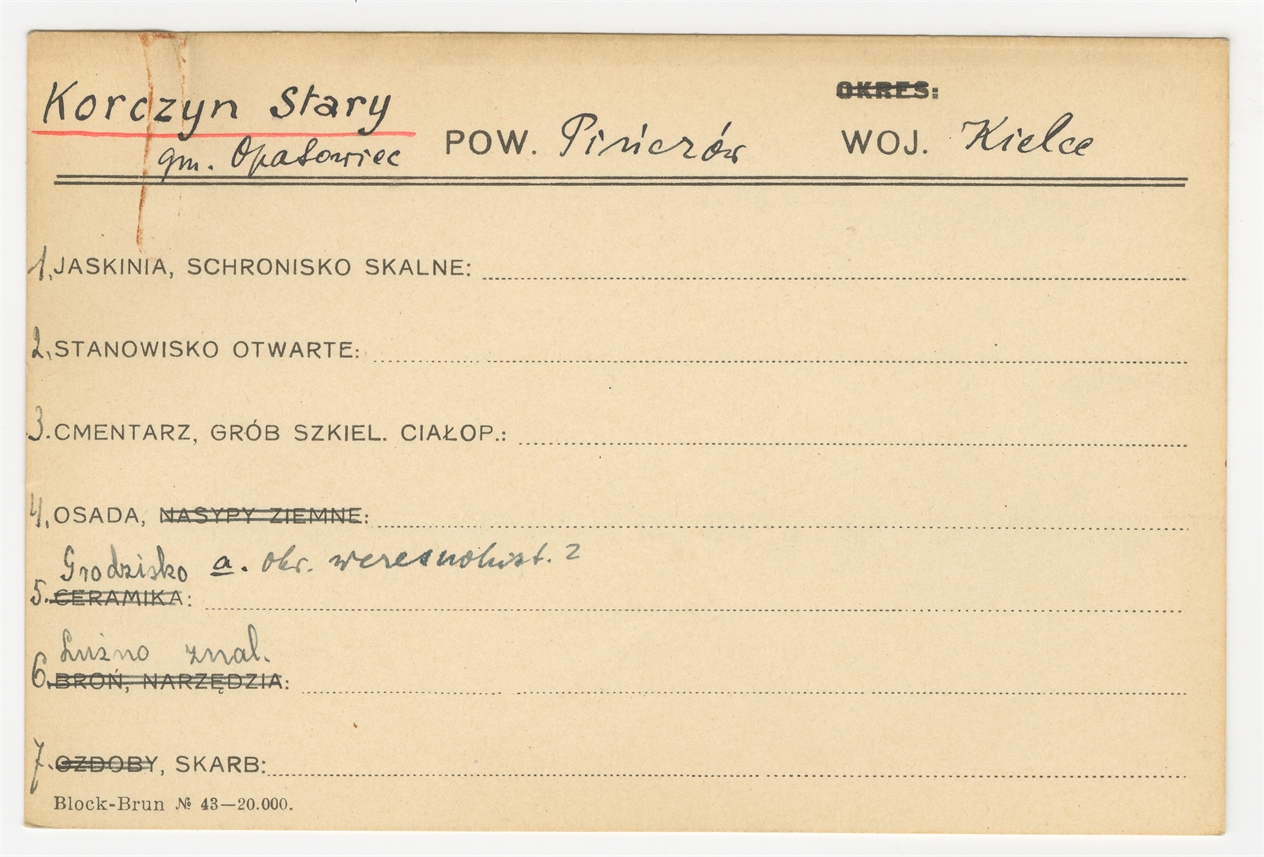 OKRES:
Korczyn Stary
gm. Opatowiec POW. Pińczów WOJ. Kielce
1. JASKINIA, SCHRONISKO SKALNE:
2. STANOWISKO OTWARTE:
3. CMENTARZ, GRÓB SZKIEL. CIAŁOP.:
4. OSADA, NASYPY ZIEMNE:
Grodzisko a. okr. wczesnohist. ?
5. CERAMIKA:
Luźno znal.
6. BROŃ, NARZĘDZIA:
7. OZDOBY, SKARB:
Block-Brun № 43—20.000.